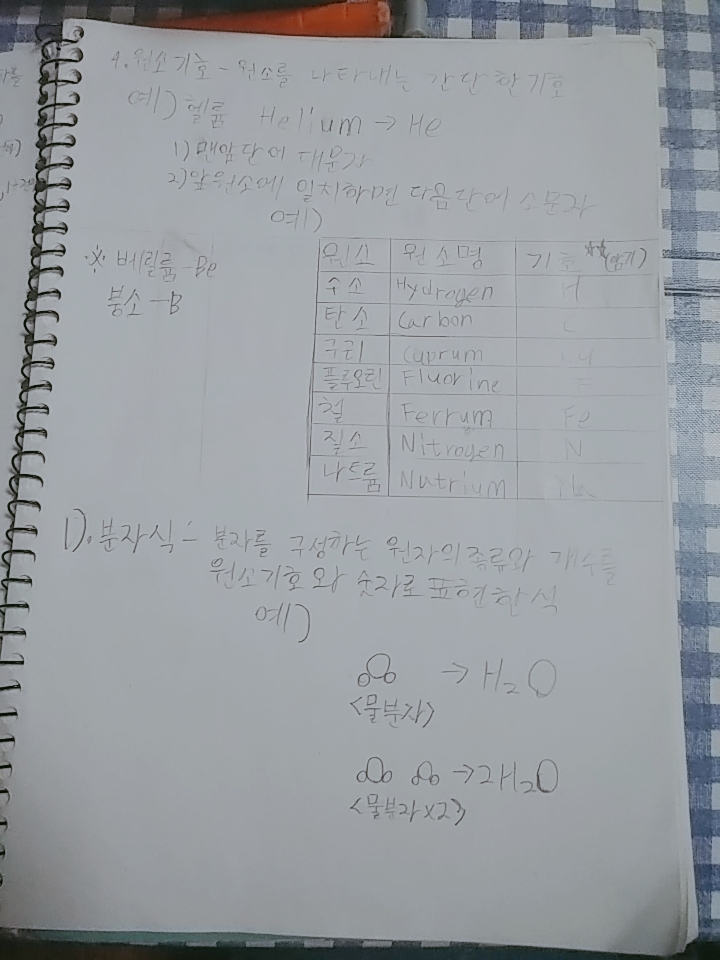 4. 원소기호 - 원소를 나타내는 간단한 기호
예) 헬륨 Helium → He
1) 맨앞단어 대문자
2) 앞원소에 일치하면 다음단어 소문자
예)
※ 베릴륨 - Be
붕소 - B
원소 원소명 기호 ☆☆(암기)
수소 Hydrogen H
탄소 Carbon C
구리 Cuprum Cu
플루오린 Fluorine F
철 Ferrum Fe
질소 Nitrogen N
나트륨 Nutrium Na
1). 분자식 - 분자를 구성하는 원자의 종류와 개수를
원소기호와 숫자로 표현한 식
예)
→ H₂O
<물분자>
→ 2H₂O
<물분자×2>